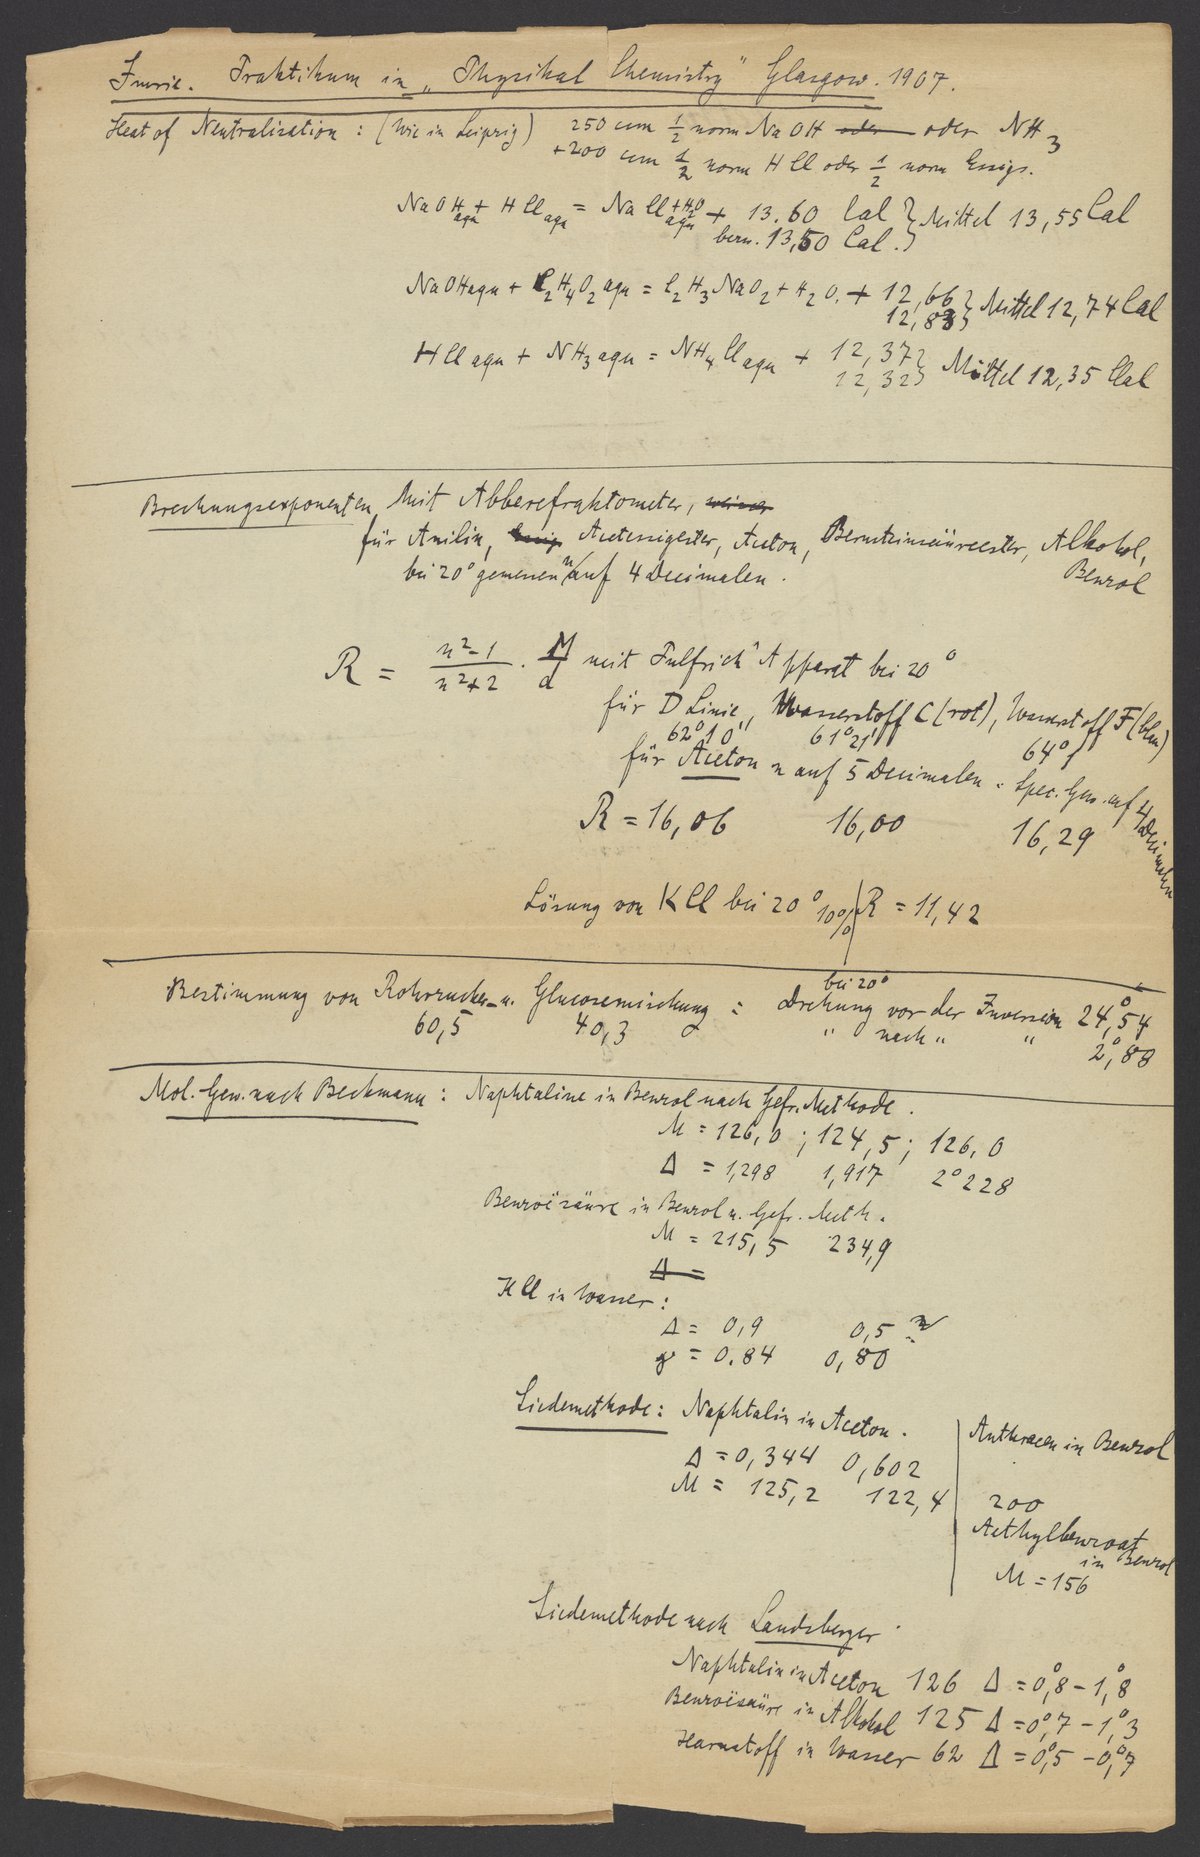 Praktikum in „Physikal Chemistry" Glasgow. 1907.
Heat of Neutralisation : (wie in Leipzig) 250 ccm 1/2 norm NaOH oder oder NH3
+200 ccm 1/2 norm HCl oder 1/2 norm Essigs.
NaOH aqu + HCl aqu = NaCl aqu + H2O + 13.60 Cal } Mittel 13,55 Cal
bern. 13,50 Cal. }
NaOH aqu + C2H4O2 aqu = C2H3NaO2 + H2O. + 12,66 } Mittel 12,74 Cal
12,83 }
HCl aqu + NH3 aqu = NH4Cl aqu + 12,37 } Mittel 12,35 Cal
12,32 }
Brechungsexponenten, mit Abberefraktometer,
für Anilin, Essig Acetessigester, Aceton, Bernsteinsäureester, Alkohol,
Benzol
bei 20° gemessen n auf 4 Decimalen.
R = n²-1 / n²+2 . M/d mit Pulfrich's Apparat bei 20°
für D Linie, Wasserstoff C (rot), Wasserstoff F (blau)
62°10' 61°21' 64°1
für Aceton n auf 5 Decimalen. Spec. Gew. auf 4 Decimalen
R = 16,06 16,00 16,29
Lösung von KCl bei 20° 10% | R = 11,42
Bestimmung von Rohrzucker- u. Glucosemischung : Drehung bei 20° vor der Inversion 24°,54
60,5 40,3 " nach " " 2°,88
Mol.-Gew. nach Beckmann : Naphtaline in Benzol nach Gefr. Methode.
M = 126,0 ; 124,5 ; 126,0
Δ = 1,298 1,917 2°228
Benzoësäure in Benzol n. Gefr. Meth.
M = 215,5 234,9
Δ =
KCl in Wasser :
Δ = 0,9 0,5
= 0.84 0,80
Siedemethode : Naphtalin in Aceton. | Anthracen in Benzol
Δ = 0,344 0,602
M = 125,2 122,4 | 200
Aethylbenzoat
in Benzol
M = 156
Siedemethode nach Landsberger
Naphtalin in Aceton 126 Δ = 0°,8 – 1°,8
Benzoësäure in Alkohol 125 Δ = 0°,7 – 1°,3
Harnstoff in Wasser 62 Δ = 0°,5 – 0°,7